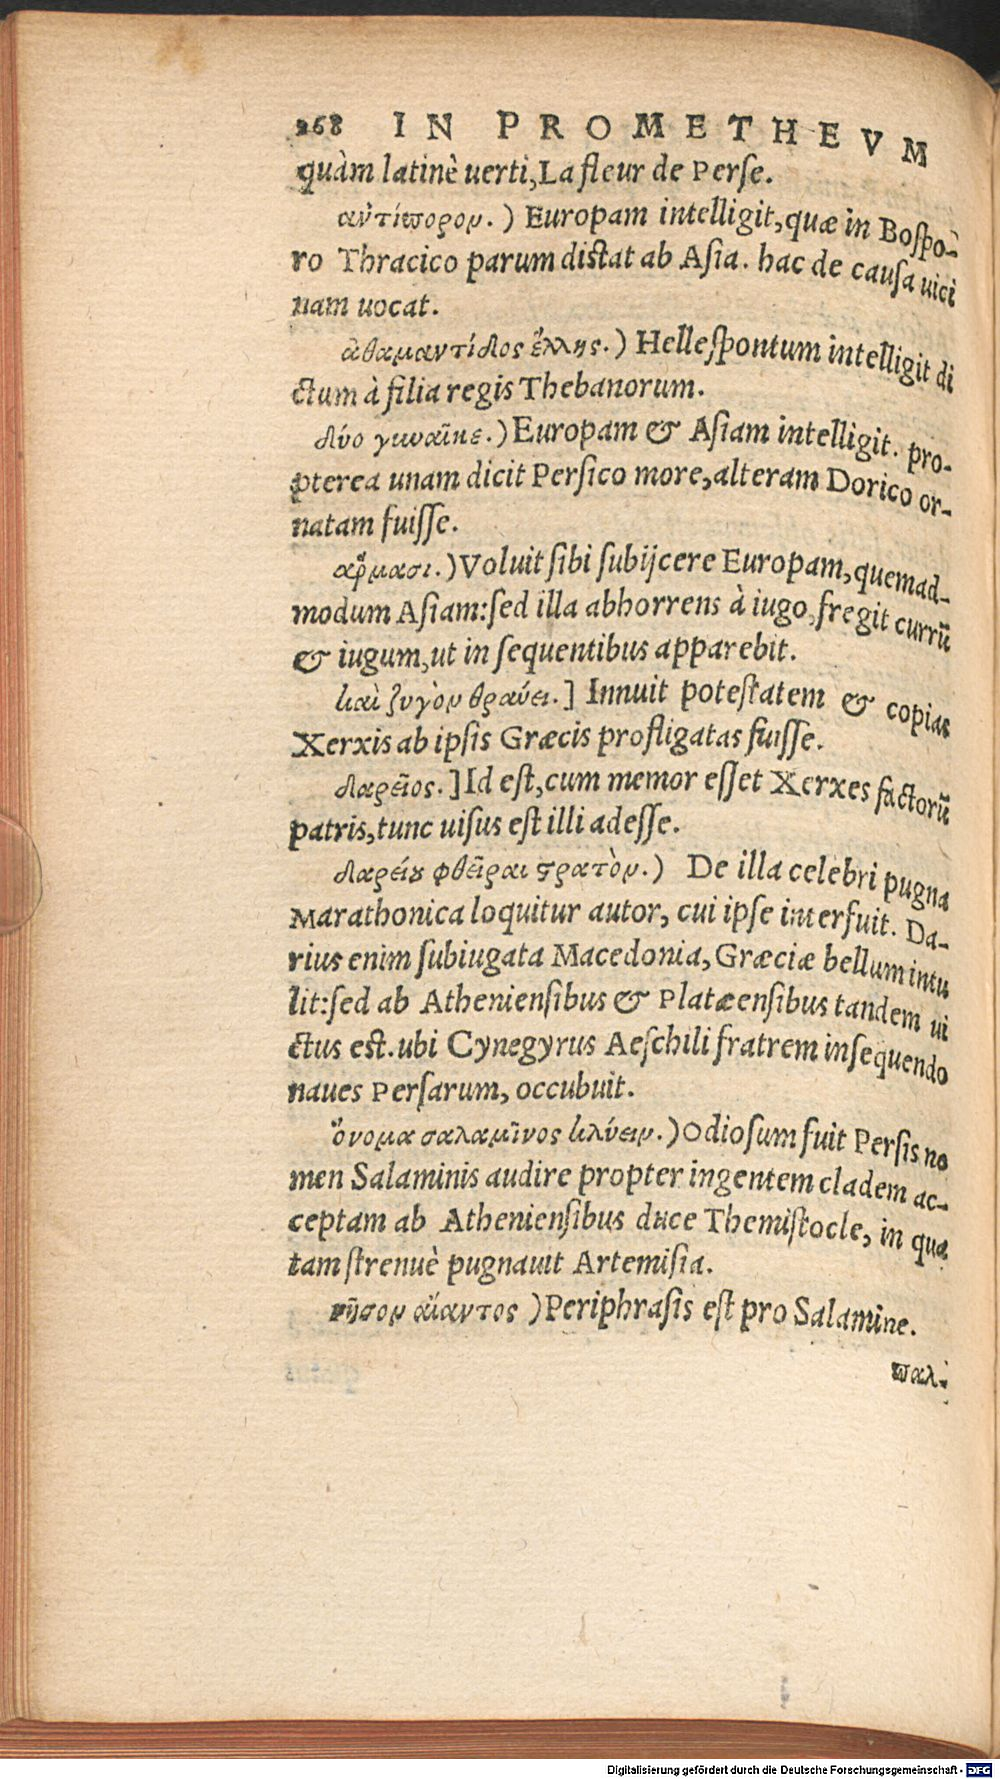 268 IN PROMETHEVM
quàm latinè uerti, La fleur de Perse.
ἀντίπορον.) Europam intelligit, quæ in Bospo-
ro Thracico parum distat ab Asia. hac de causa uici
nam uocat.
ἀθαμαντίδος ἕλλης.) Hellespontum intelligit di
ctum à filia regis Thebanorum.
δύο γυναῖκε.) Europam & Asiam intelligit. pro-
pterea unam dicit Persico more, alteram Dorico or-
natam fuisse.
ἅρμασι.) Voluit sibi subijcere Europam, quemad-
modum Asiam: sed illa abhorrens à iugo, fregit currũ
& iugum, ut in sequentibus apparebit.
καὶ ζυγὸν θραύει.] Innuit potestatem & copias
Xerxis ab ipsis Græcis profligatas fuisse.
δαρεῖος.] Id est, cum memor esset Xerxes factorũ
patris, tunc uisus est illi adesse.
δαρείου φθεῖραι στρατὸν.) De illa celebri pugna
Marathonica loquitur autor, cui ipse interfuit. Da-
rius enim subiugata Macedonia, Græciæ bellum intu
lit: sed ab Atheniensibus & Platæensibus tandem ui
ctus est. ubi Cynegyrus Aeschili fratrem insequendo
naues Persarum, occubuit.
ὄνομα σαλαμῖνος κλύειν.) Odiosum fuit Persis no
men Salaminis audire propter ingentem cladem ac-
ceptam ab Atheniensibus duce Themistocle, in qua
tam strenuè pugnauit Artemisia.
νῆσον αἴαντος ) Periphrasis est pro Salamine.
παλ-
Digitalisierung gefördert durch die Deutsche Forschungsgemeinschaft - DFG